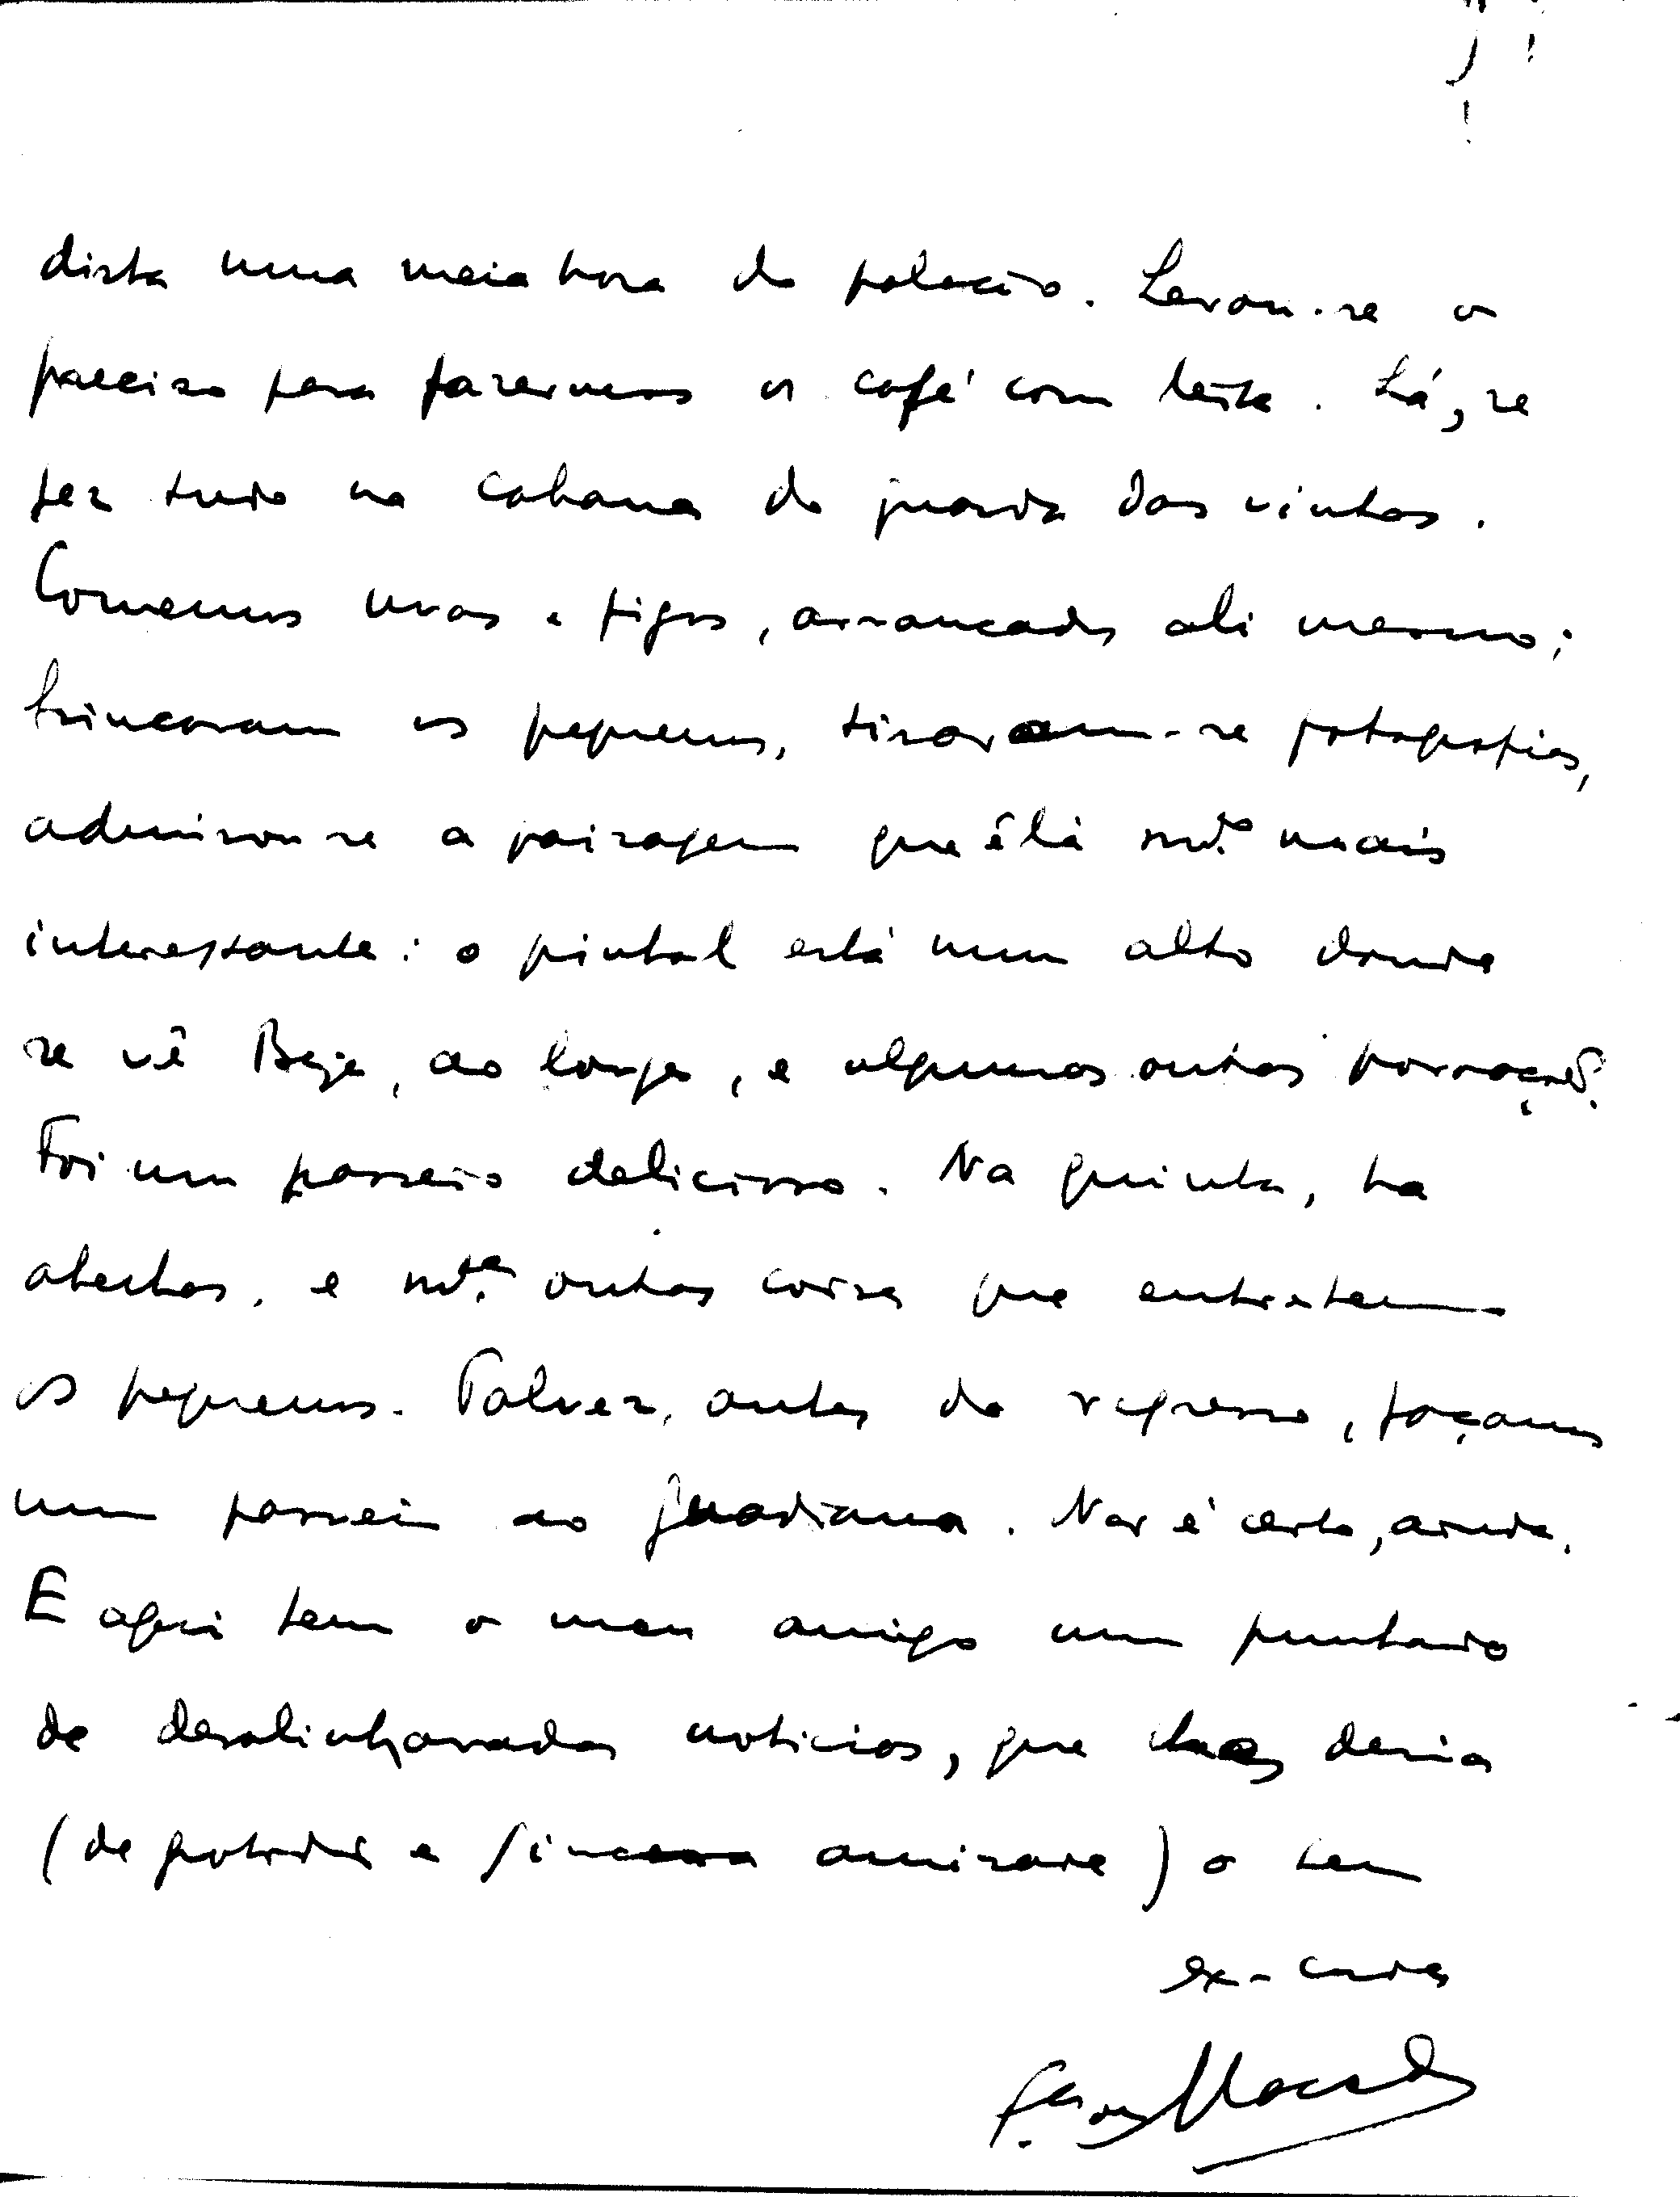 dista uma meia hora do palacio. Levou-se o
preciso para fazermos o café com leite. Lá, se
fez tudo na cabana do guarda das vinhas.
Comemos uvas e figos, arrancados ali mesmo;
brincaram os pequenos, tiraram-se fotografias,
admirou-se a paisagem que é lá mt.º mais
interessante: o pinhal está num alto donde
se vê Beja, ao longe, e algumas outras povoações.
Foi um passeio delicioso. Na quinta, ha
abelhas, e mt.ªs outras coisas que entreteem
os pequenos. Talvez, antes do regresso, façamos
um passeio ao Guadiana. Não é certo, ainda.
E aqui tem o meu amigo um punhado
de desalinhavadas noticias, que lhas devia
(de gratidão e sincera amizade) o seu
ex-